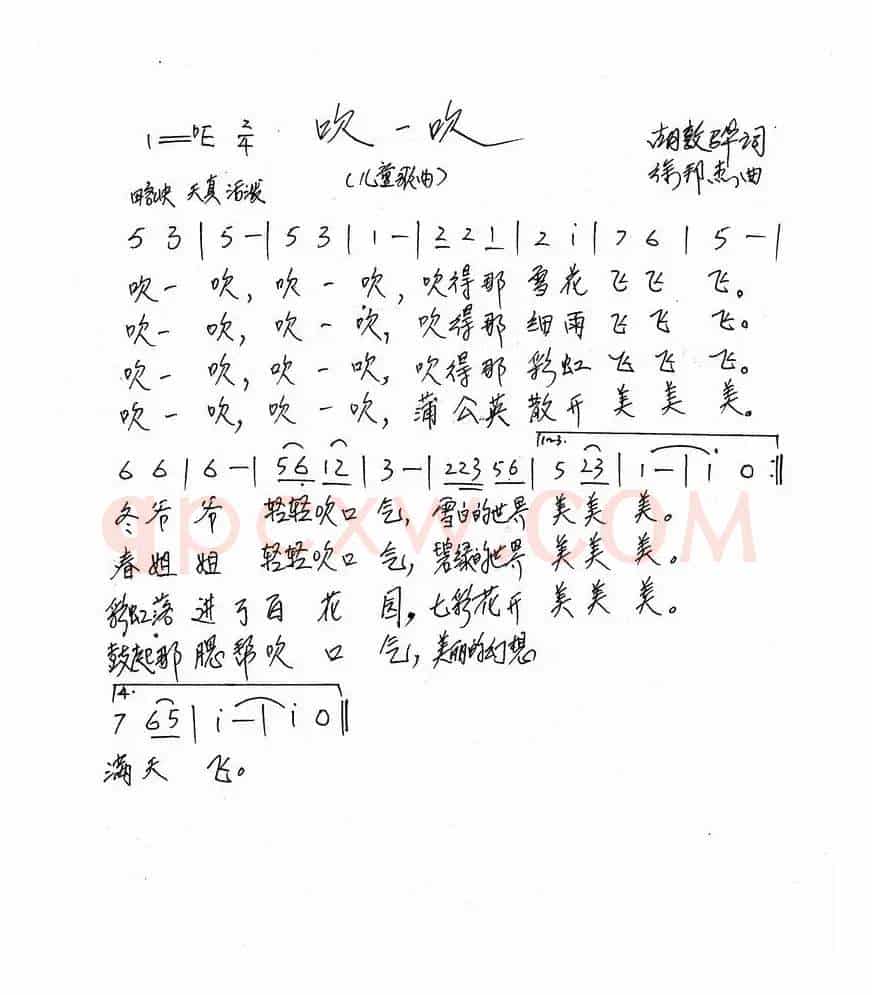 1=♭E 2/4 吹一吹 胡敦骅词
略快 天真活泼 (儿童歌曲) 徐邦杰曲
5 3 | 5 - | 5 3 | 1 - | 2 2 1 | 2 i | 7 6 | 5 - |
吹一 吹, 吹一吹, 吹得那 雪花 飞飞 飞。
吹一 吹, 吹一吹, 吹得那 细雨 飞飞 飞。
吹一 吹, 吹一吹, 吹得那 彩虹 飞飞 飞。
吹一吹, 吹一吹, 蒲公英 散开 美美 美。
1~3.
6 6 | 6 - | 56 12 | 3 - | 223 56 | 5 23 | 1 - | i 0 :||
冬爷 爷 轻轻吹口 气, 雪白的世界 美美 美。
春姐 姐 轻轻吹口 气, 碧绿的世界 美美 美。
彩虹落 进了百 花 园, 七彩花开 美美 美。
鼓起那 腮帮吹 口 气, 美丽的幻想
4.
7 65 | i - | i 0 ||
满天 飞。
qpcxw.COM